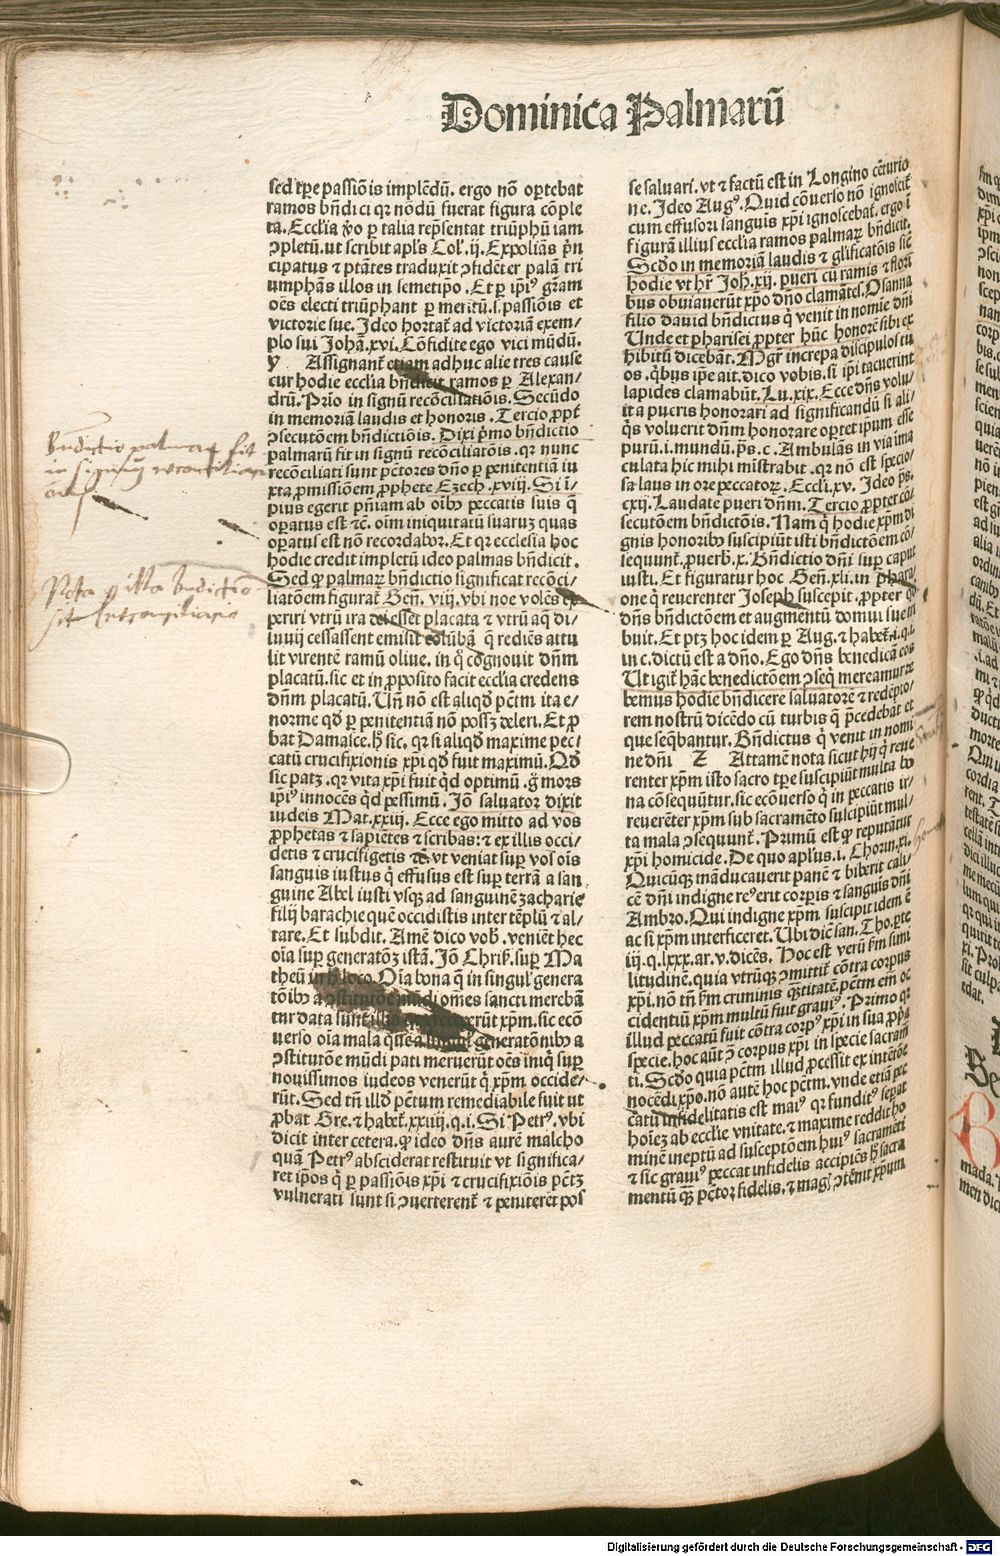 Dominica Palmarū
sed tꝑe passiōis implēdū. ergo nō oꝑtebat
ramos bñdici qꝛ nōdū fuerat figura cōple
ta. Ecclīa ꝟo ꝑ talia repn̄sentat triūphū iam
ꝯpletū. ut scribit apl̄s Col̄. ij. Expoliās p̄n
cipatus ⁊ ptātes traduxit ꝯfidēter palā tri
umphās illos in semetipo. Et ꝑ ip̄iꝰ gr̄am
oēs electi triūphant ꝑ meritū. s. passiōis et
victorie sue. Ideo hortat᷑ ad victoriā exem⸗
plo sui Johā. xvi. Cōfidite ego vici mūdū.
Y Assignant᷑ etiam adhuc alie tres cause
cur hodie ecclīa bñdicit ramos ꝑ Alexan⸗
drū. Prīo in signū recōciliatiōis. Secūdo
in memoriā laudis et honoris. Tercio ꝓpt̄
ꝯsecutōem bñdictiōis. Dixi p̄mo bñdictio
palmarū fit in signū recōciliatōis. qꝛ nunc
recōciliati sunt pctōres dño ꝑ penitentiā iu
xta ꝓmissiōem ꝓphete Ezech. xviij. Si ī⸗
pius egerit pñiam ab oībꝫ peccatis suis q̄
oꝑatus est ⁊c̄. oīm iniquitatū suarꝫ quas
oꝑatus est nō recordabor. Et qꝛ ecclesia hoc
hodie credit impletū ideo palmas bñdicit.
Sed ꝙ palmaꝝ bñdictio significat recōci⸗
liatōem figurat᷑ Gen̄. viij. vbi noe volēs ex
periri vtrū ira dei esset placata ⁊ vtrū aq̄ di⸗
luuij cessassent emisit colūbā q̄ rediēs attu
lit virentē ramū oliue. in qͦ cōgnouit dñm
placatū. sic et in ꝓposito facit ecclīa credens
dñm placatū. Uñ nō est aliqd̄ pctm̄ ita e⸗
norme qd̄ ꝑ penitentiā nō possꝫ deleri. Et ꝓ
bat Damasce. h̄ sic. qꝛ si aliqd̄ maxime pec⸗
catū crucifixionis xp̄i qd̄ fuit maximū. Qd̄
sic patꝫ. qꝛ vita xp̄i fuit qͥd optimū. g̊ mors
ip̄iꝰ innocēs qͥd pessimū. Jō saluator dixit
iudeis Mat. xxiij. Ecce ego mitto ad vos
ꝓphetas ⁊ sapiētes ⁊ scribas: ⁊ ex illis occi⸗
detis ⁊ crucifigetis ⁊c̄. vt veniat suꝑ vos oīs
sanguis iustus qͥ effusus est suꝑ terrā a san
guine Abel iusti vsqꝫ ad sanguinē zacharie
filij barachie quē occidistis inter tēplū ⁊ al⸗
tare. Et subdit. Amē dico vob̄. veniēt hec
oīa suꝑ generatōꝫ istā. Jō Chrīs. suꝑ Ma
theū in h̄ loco. Oīa bona q̄ in singul̄ genera
tōibꝫ a ꝯstitutōe mūdi om̄es sancti merebā
tur data sunt xp̄m. sic ecō
uerso oīa mala que a generatōnibꝫ a
ꝯstitutōe mūdi pati meruerūt oēs iniqͥ suꝑ
nouissimos iudeos venerūt qͥ xp̄m occide⸗
rūt. Sed tñ illd̄ pctūm remediabile fuit ut
ꝓbat Gre. ⁊ habet᷑. xxiiij. q. i. Si Petrꝰ. vbi
dicit inter cetera. ꝙ ideo dñs aurē malcho
quā Petrꝰ absciderat restituit vt significa⸗
ret ip̄os qͥ ꝑ passiōis xp̄i ⁊ crucifixiōis pctꝫ
vulnerati sunt si ꝯuerterent᷑ ⁊ peniteret pos
se saluari. vt ⁊ factū est in Longino cēturio
ne. Ideo Augꝰ. Quid cōuerso nō ignoscit᷑
cum effusori sanguīs xp̄i ignoscebat᷑. ergo ī
figurā illius ecclīa ramos palmaꝝ bñdicit.
Scd̄o in memoriā laudis ⁊ gl̄ificatōis sic̄
hodie vt hr̄ Joh̄. xij. pueri cū ramis ⁊ flori
bus obuiauerūt xp̄o dño clamātes. Osanna
filio dauid bñdictus qͥ venit in nomie dñi
Unde et pharisei ꝓpter hūc honorē sibi ex
hibitū dicebāt. Mgr̄ increpa discipulos tu
os. qͥbus ip̄e ait. dico vobis. si ip̄i tacuerint
lapides clamabūt. Lu. xix. Ecce dñs volu⸗
it a pueris honorari ad significandū si ali⸗
qͥs voluerit dñm honorare oꝑtet ipum esse
purū. i. mundū. p̄s. c. Ambulās in via ima
culata hic mihi mīstrabit. qꝛ nō est specio⸗
sa laus in ore peccatoꝝ. Eccl̄i. xv. Ideo p̄s.
cxij. Laudate pueri dñm. Tercio ꝓpter cō⸗
secutōem bñdictōis. Nam qͥ hodie xp̄m di
gnis honoribꝫ suscipiūt isti bñdictōem cō⸗
sequunt᷑. ꝓuerb̄. x. Bñdictio dñi suꝑ caput
iusti. Et figuratur hoc Gen̄. xli. in phara⸗
one qͥ reuerenter Joseph suscepit. ꝓpter qd̄
dñs bñdictōem et augmentū domui sue tri
buit. Et ptꝫ hoc idem ꝑ Aug. ⁊ habet᷑. i. q. i.
in c. dictū est a dño. Ego dñs benedicā eos
Ut igit᷑ hāc benedictōem ꝯseqͥ mereamur ro
bemus hodie bñdicere saluatorē ⁊ redēpto⸗
rem nostrū dicēdo cū turbis q̄ p̄cedebāt et
que seq̄bantur. Bñdictus qͥ venit in nomi
ne dñi Z Attamē nota sicut hij qͥ reue
renter xp̄m isto sacro tꝑe suscipiūt multa bo
na cōsequūtur. sic ecōuerso qͥ in peccatis ir⸗
reuerēter xp̄m sub sacramēto suscipiūt mul⸗
ta mala ꝯsequunt᷑. Primū est ꝙ reputātur
xp̄i homicide. De quo apl̄us. i. Chorin. xi.
Quicūqꝫ māducauerit panē ⁊ biberit cali⸗
cē dñi indigne reꝰ erit corꝑis ⁊ sanguīs dñi
Ambro. Qui indigne xp̄m suscipit idem ē
ac si xp̄m interficeret. Ubi dic̄ san. Tho. ꝑte
iij. q. lxxx. ar. v. dicēs. Hoc est verū ẜm simi
litudinē. quia vtrūqꝫ ꝯmittit᷑ cōtra corpus
xp̄i. nō tñ ẜm criminis qͣntitatē. pctm̄ em̄ oc
cidentiū xp̄m multū fuit grauiꝰ. Primo qꝛ
illud peccatū fuit cōtra corpꝰ xp̄i in sua ꝓpͥa
specie. hoc aūt ꝯ corpus xp̄i in specie sacram̄
ti. Scd̄o quia pctm̄ illud ꝓcessit ex intētōe
nocēdi xp̄o. nō autē hoc pctm̄. vnde etiā pec
catū infidelitatis est maiꝰ qꝛ funditꝰ seꝑat
hoīeꝫ ab ecclīe vnitate. ⁊ maxime reddit ho
minē ineptū ad susceptōem huiꝰ sacramēti
⁊ sic grauiꝰ peccat infidelis accipiēs h̄ sacra
mentū qͣꝫ pctor fidelis. ⁊ magꝭ ꝯtēnit xp̄um
Bn̄dictio palmarū fit
in signum reconciliati
onis
Nota ꝙ ista bn̄dictio
sit reconciliatio
Digitalisierung gefördert durch die Deutsche Forschungsgemeinschaft - DFG